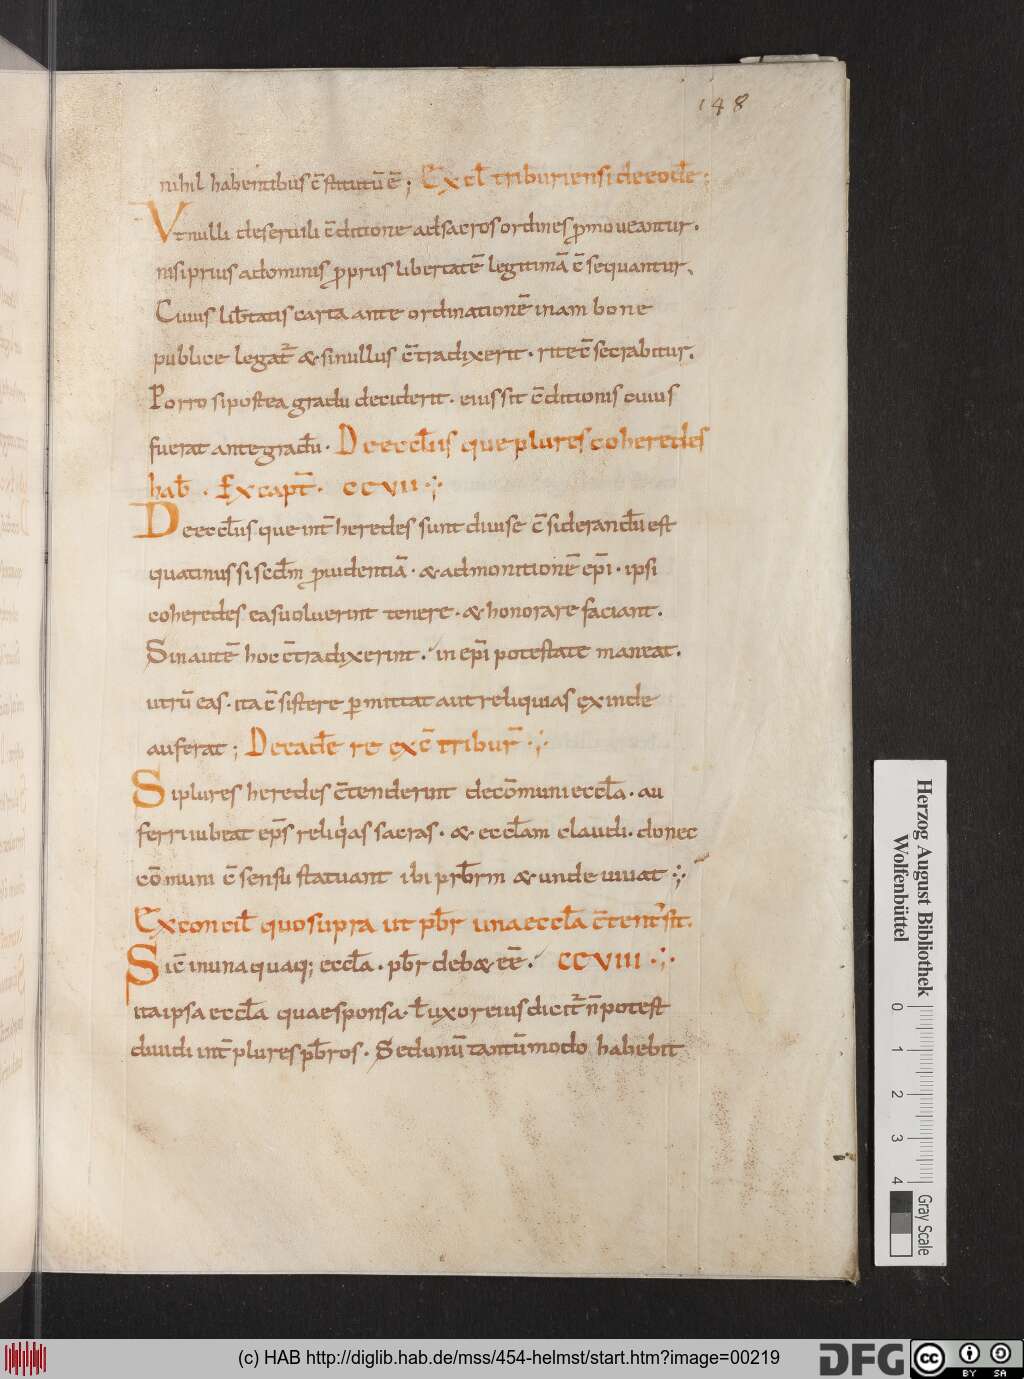 148
nihil habentibus c̄stitutū ē; Ex cł triburiensi de eođe:
Vt nulli deseruili c̄ditione adsacros ordines p̄moueantur.
nisiprius adominis p̄prius libertatē legitimā c̄sequantur.
Cuius lib̄tatis carta ante ordinationē inam bone
publice legat̄ & sinullus c̄tradixerit. rite c̄secrabitur.
Porro sipostea gradu deciderit. eius sit c̄ditionis cuius
fuerat ante gradū. De eccłiis que plures coheredes
hab̄. Ex capt̄. ccvii
De eccłiis que int̄ heredes sunt diuise c̄siderandū est
quatinus si scđm p̄uidentiā. & admonitionē ep̄i. ipsi
coheredes eas uoluerint tenere. & honorare faciant.
Sin autē hoc c̄tradixerint. in ep̄i potestate maneat.
utrū eas. ita c̄sistere permittat aut reliquias exinde
auferat; De eađe re ex c̄ tribur̄
Si plures heredes c̄tenderint decōmuni eccła. au
ferri iubeat ep̄s reliq̇as sacras. & eccłam claudi. donec
cōmuni c̄sensu statuant ibi prb̄rm & unde uiuat
Ex concił quo supra ut pb̄r una eccła c̄tent' sit.
Sic̄ in unaquaq; eccła. pb̄r deb& eē. CCVIII
ita ipsa eccła quae sponsa. ł uxor eius dicit̄ n̄ potest
diuidi int̄ plures pb̄ros. Sed unū tantūmodo habebit
Herzog August Bibliothek
Wolfenbüttel
0 1 2 3 4
Gray Scale
(c) HAB http://diglib.hab.de/mss/454-helmst/start.htm?image=00219
DFG
cc BY SA